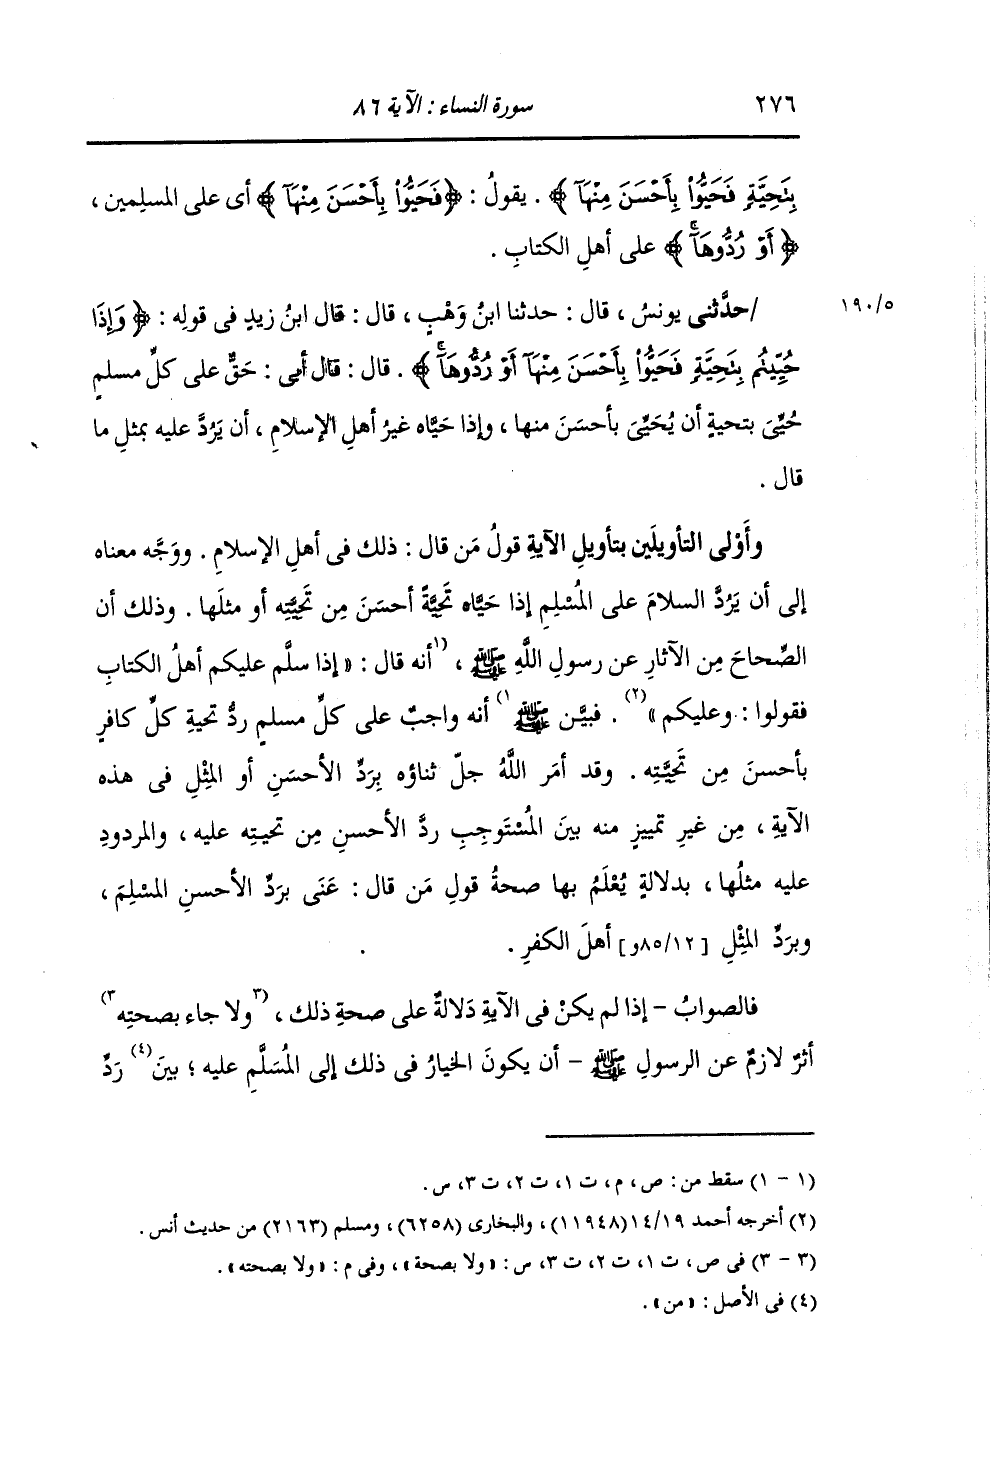 ٢٧٦
سورة النساء : الآية ٨٦
بِتَحِيَّةٍ فَحَيُّوا۟ بِأَحْسَنَ مِنْهَآ ﴾ . يقولُ : ﴿ فَحَيُّوا۟ بِأَحْسَنَ مِنْهَآ ﴾ أى على المسلِمين ،
﴿ أَوْ رُدُّوهَآ ﴾ على أهلِ الكتابِ .
/حدَّثنى يونسُ ، قال : حدثنا ابنُ وَهْبٍ ، قال : قال ابنُ زيدٍ فى قولِه : ﴿ وَإِذَا
١٩٠/٥
حُيِّيتُم بِتَحِيَّةٍ فَحَيُّوا۟ بِأَحْسَنَ مِنْهَآ أَوْ رُدُّوهَآ ﴾ . قال : قال أبى : حَقٌّ على كلِّ مسلمٍ
حُيِّىَ بتحيةٍ أن يُحَيِّىَ بأحسَنَ منها ، وإذا حَيَّاه غيرُ أهلِ الإسلامِ ، أن يَرُدَّ عليه بمثلِ ما
قال .
وأَوْلى التأويلَين بتأويلِ الآيةِ قولُ مَن قال : ذلك فى أهلِ الإسلامِ . ووَجَّه معناه
إلى أن يَرُدَّ السلامَ على المُسْلِمِ إذا حَيَّاه تَحِيَّةً أحسَنَ مِن تَحِيَّتِه أو مثلَها . وذلك أن
الصِّحاحَ مِن الآثارِ عن رسولِ اللَّهِ ﷺ ، (١أنه قال : « إذا سلَّم عليكم أهلُ الكتابِ
فقولوا : وعليكم »(٢) . فبيَّن ﷺ ١) أنه واجبٌ على كلِّ مسلمٍ ردُّ تحيةِ كلِّ كافرٍ
بأحسنَ مِن تَحِيَّتِه . وقد أمَر اللَّهُ جلّ ثناؤه بِرَدِّ الأحسَنِ أو المِثْلِ فى هذه
الآيةِ ، مِن غيرِ تمييزٍ منه بينَ المُسْتَوجِبِ ردَّ الأحسنِ مِن تحيتِه عليه ، والمردودِ
عليه مثلُها ، بدلالةٍ يُعْلَمُ بها صحةُ قولِ مَن قال : عَنَى برَدِّ الأحسنِ المسْلِمَ ،
وبرَدِّ المِثْلِ [٨٥/١٢و] أهلَ الكفرِ .
فالصوابُ – إذا لم يكنْ فى الآيةِ دَلالةٌ على صحةِ ذلك ، (٣ولا جاء بصحتِه٣)
أثرٌ لازمٌ عن الرسولِ ﷺ – أن يكونَ الخيارُ فى ذلك إلى المُسَلَّمِ عليه ؛ بينَ(٤) رَدِّ
(١ – ١) سقط من : ص ، م ، ت ١ ، ت ٢ ، ت ٣ ، س .
(٢) أخرجه أحمد ١٤/١٩ (١١٩٤٨) ، والبخارى (٦٢٥٨) ، ومسلم (٢١٦٣) من حديث أنس .
(٣ – ٣) فى ص ، ت ١ ، ت ٢ ، ت ٣ ، س : « ولا بصحة » ، وفى م : « ولا بصحته » .
(٤) فى الأصل : « من » .